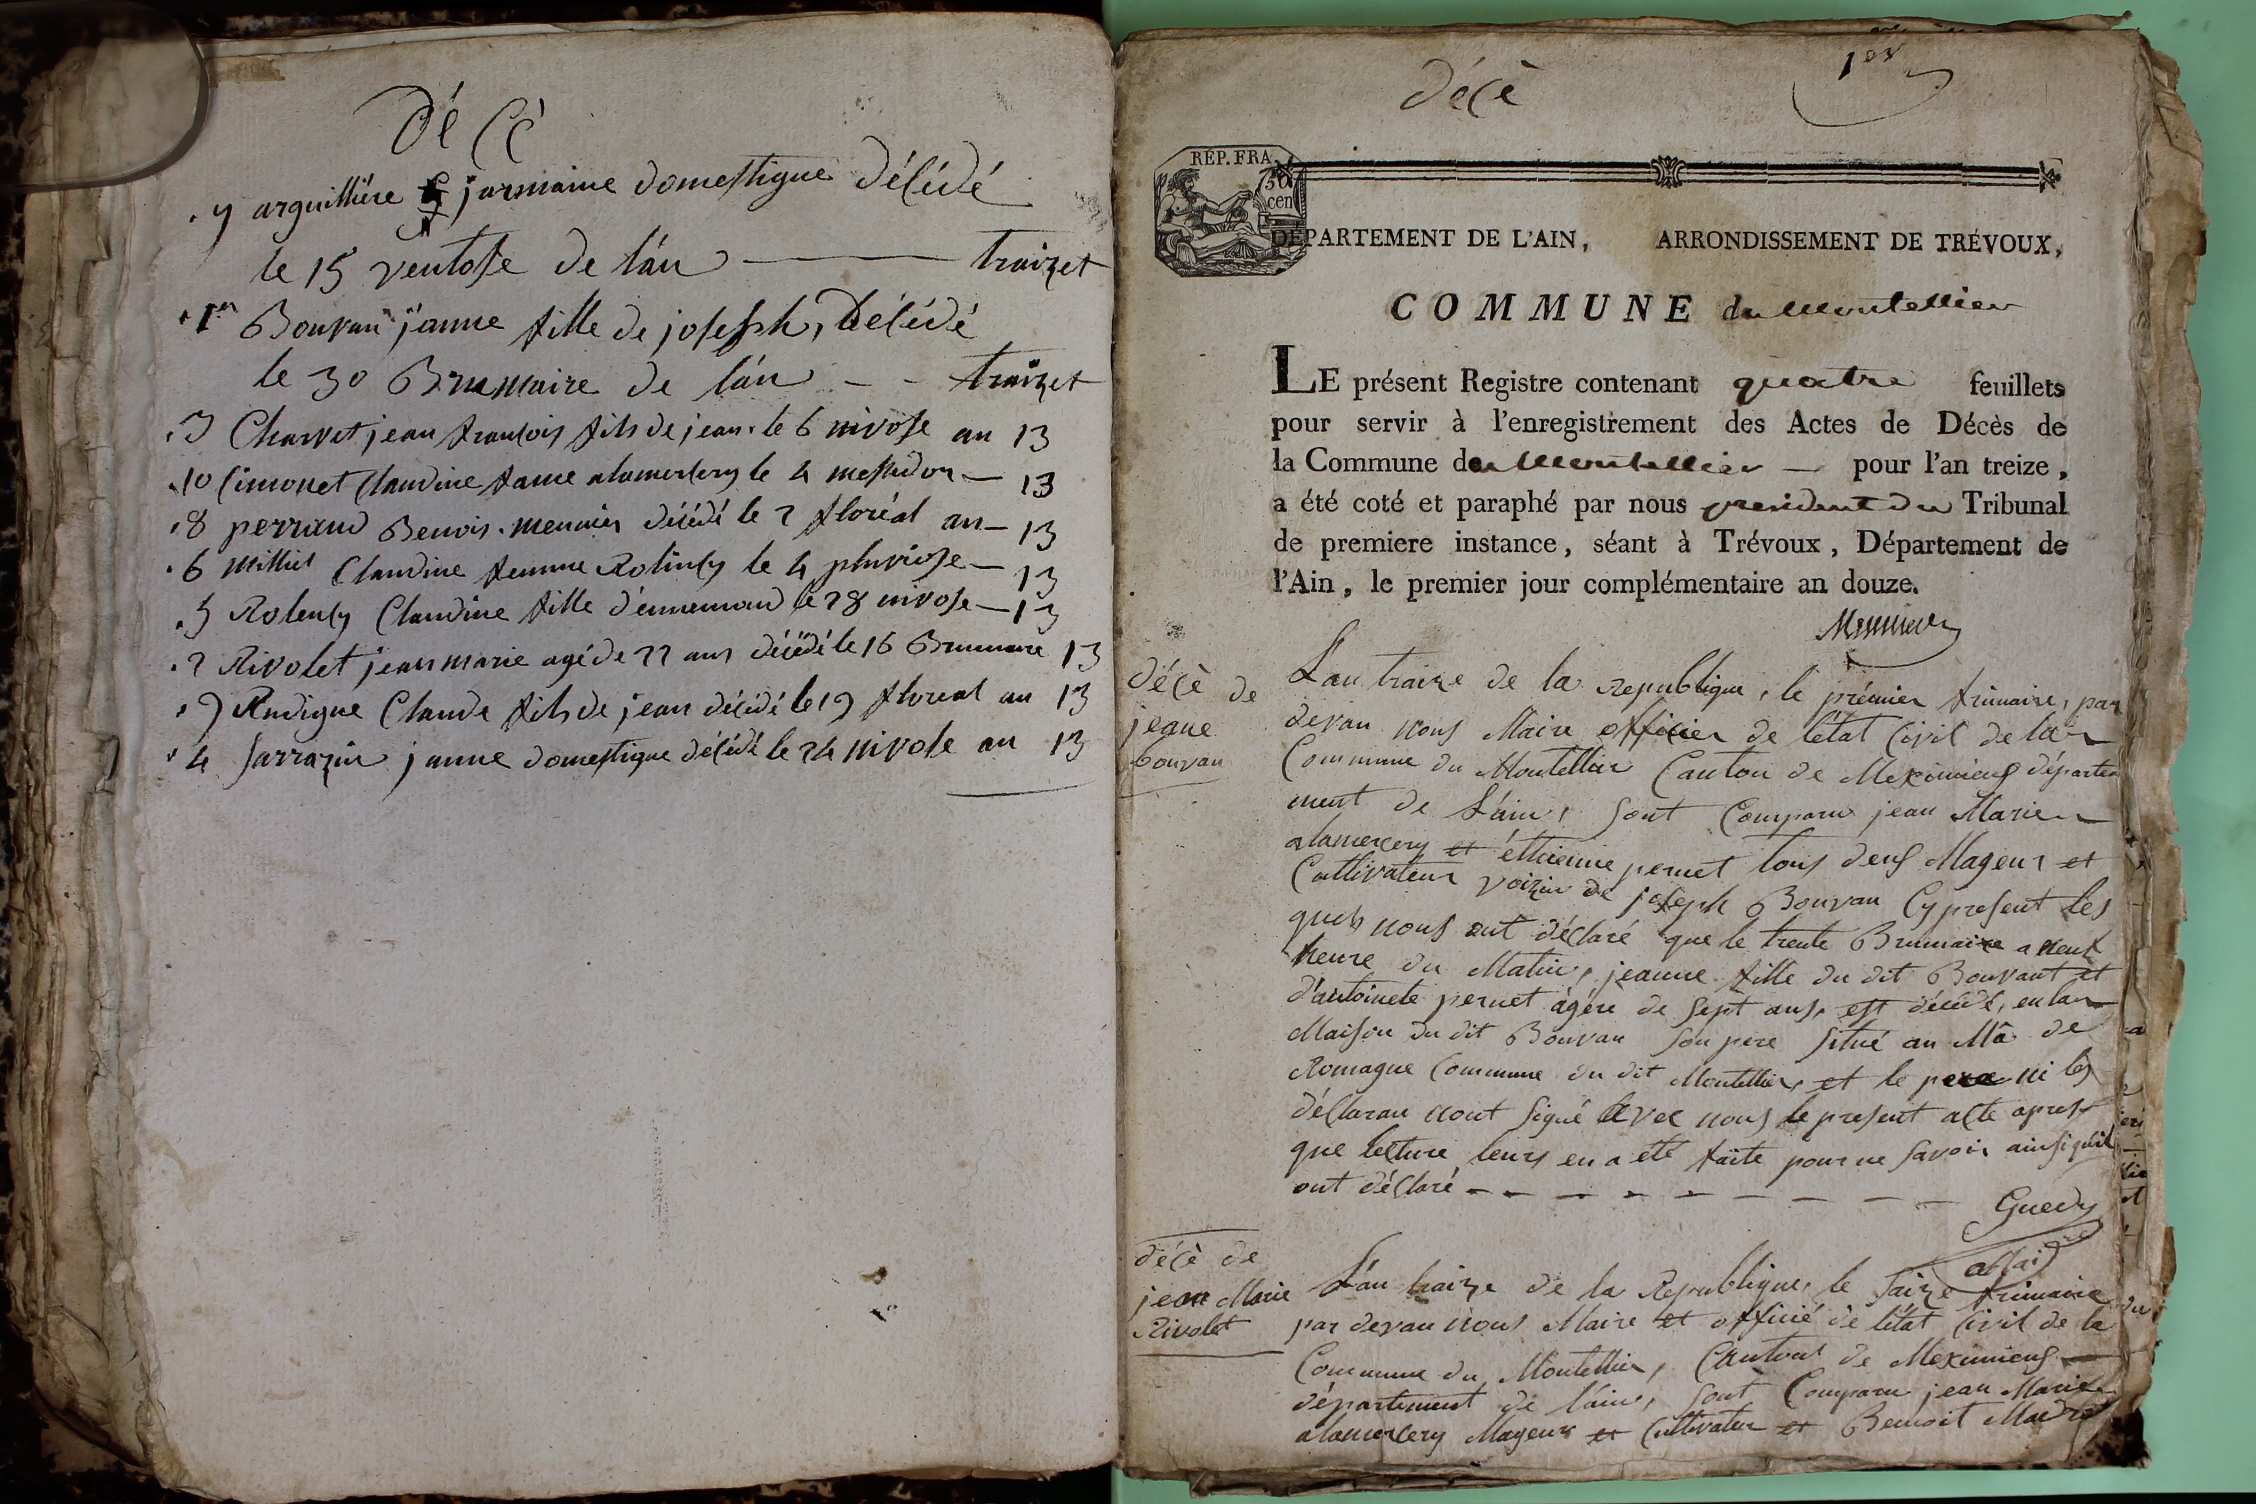 décé
7 arguillière jarmaine domestique décédé
le 15 ventose de l'án — traizet
1er Bouvan janne fille de joseph, décédé
le 30 Brumaire de l'án - - traizet
3 Charvet jean francois fils de jean. le 6 nivose an 13
10 Simonet Claudine fame alamercery le 4 messidor — 13
8 perraud Benois. meunier décédé le 2 floréal an — 13
6 Milliet Claudine femme le 4 pluviose — 13
5 Claudine fille d'ennemond le 28 nivose — 13
2 Rivolet jean marie agé de 22 ans décédé le 16 Brumaire 13
9 Claude fils de jean décédé le 19 floreal an 13
4 Sarrazin janne domestique décédé le 24 nivose an 13
décè
1er
RÉP. FRA.
50
cen
DÉPARTEMENT DE L'AIN, ARRONDISSEMENT DE TRÉVOUX,
COMMUNE du Montellier
LE présent Registre contenant quatre feuillets
pour servir à l'enregistrement des Actes de Décès de
la Commune du Montellier — pour l'an treize,
a été coté et paraphé par nous president du Tribunal
de premiere instance, séant à Trévoux, Département de
l'Ain, le premier jour complémentaire an douze.
décè de
jeane
bouvan
L'an traize de la republique, le prémier frimaire, par
devan nous Maire officier de l'état Civil de la
Commune du Montellier Canton de Meximieus départe
ment de L'ain, sont Comparu jean Marie
alamercery et éthienne pernet tous deus Mageur et
Cultivateur voizin de joseph Bouvan Cy present les
quels nous ont déclaré que le trente Brumaire a neuf
heure du Matin, jeanne fille du dit Bouvant et
d'antoinete pernet agére de sept ans, est décédé, en la
Maison du dit Bouvan son pere situé au Mâ de
Romagne Commune du dit Montellier, et le pere ni les
déclaran nont signé avec nous le present acte apres
que lecture leurs en a été faite pour ne savoir ainsi quil
ont déclaré - - - - - - - -
Guedy
Maire
décè de
jean Marie
Rivolet
L'an traize de la Republique, le saize frimaire
par devan nous Maire et officié de l'état Civil de la
Commune du Montellier, Canton de Meximieus
département de l'ain, sont Comparu jean Marie
alamercery Mageur et Cultivateur et Benoit